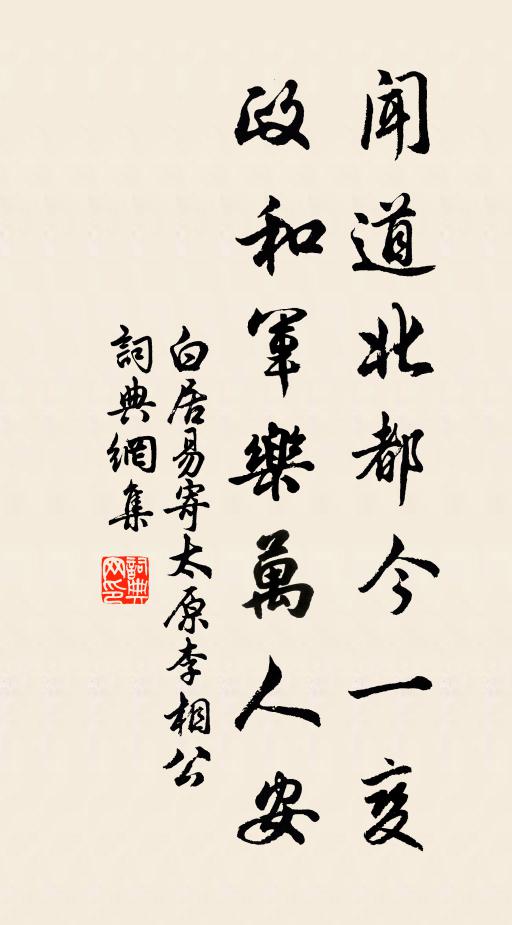 聞道北都今一變
政和軍樂萬人安
白居易寄太原李相公
詞典網集
詞典网印